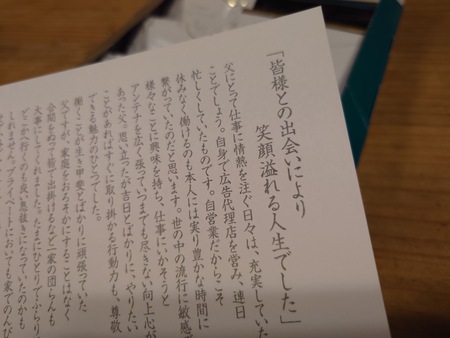 「皆様との出会いにより
笑顔溢れる人生でした」
父にとって仕事に情熱を注ぐ日々は、充実していた
ことでしょう。自身で広告代理店を営み、連日
忙しくしていたものです。自営業だからこそ
休みなく働けるのも本人には実り豊かな時間に
繋がっていたのだと思います。世の中の流行に敏感で
様々なことに興味を持ち、仕事にいかそうと
アンテナを広く張っていつまでも尽きない向上心が
あった父。思い立ったが吉日とばかりに、やりたい
ことがあればすぐに取り掛かる行動力も、尊敬
できる魅力のひとつでした。
働くことが生き甲斐とばかりに頑張っていた
父ですが、家庭をおろそかにすることはなく
合間をぬって皆で出掛けるなど一家の団らんも
大事にしてくれました。たまにひとりでふらり
どこかへ行くのも良い息抜きになっていたのかも
しれません。プライベートにおいても家でのんび